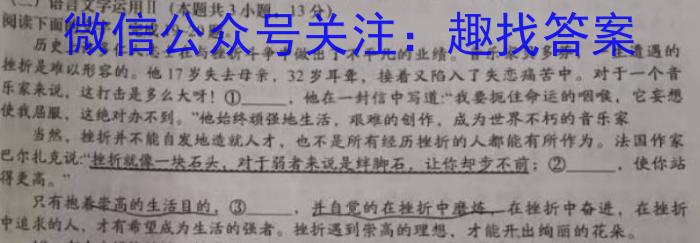 (二)语言文字运用Ⅱ(本题共3小题,13分)
阅读下面的
微信公众号关注:趣找答案
历史 在与挫折斗争中做出了不平凡的业绩。音乐家贝多芬,一生遭遇的
挫折是难以形容的。他17岁失去母亲,32岁耳聋,接着又陷入了失恋痛苦中。对于一个音
乐家来说,这打击是多么大呀!①____,他在一封信中写道:“我要扼住命运的咽喉,它妄想
使我屈服,这绝对办不到。”他始终顽强地生活,艰难的创作,成为世界不朽的音乐家
当然,挫折并不能自发地造就人才,也不是所有经历挫折的人都能有所作为。法国作家
巴尔扎克说:“挫折就像一块石头,对于弱者来说是绊脚石,让你却步不前;②____,使你站
得更高。”
只有抱着崇高的生活目的,③____,并自觉的在挫折中磨炼,在挫折中奋进,在挫折
中追求的人,才有希望成为生活的强者。挫折遇到崇高的理想,才能开出绚丽的花朵。